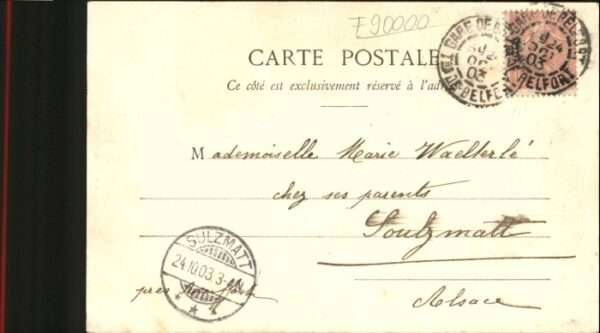 F90000
CARTE POSTALE
Ce côté est exclusivement réservé à l'adre
GARE DE BELFORT
24
OCT
03
BELFORT
Mademoiselle Marie Waelterlé
chez ses parents
Soultzmatt
SULZMATT
24.10.03 3-4N
près
Alsace